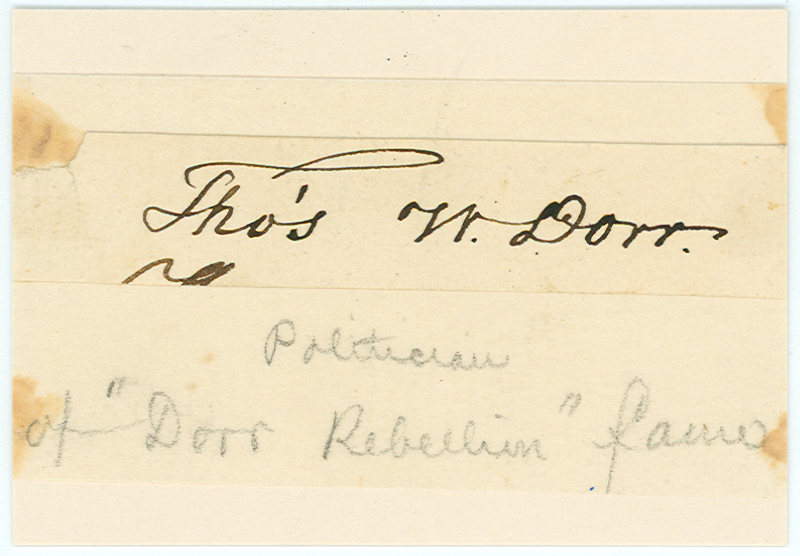 Tho's W. Dorr.
Politician
of "Dorr Rebellion" fame